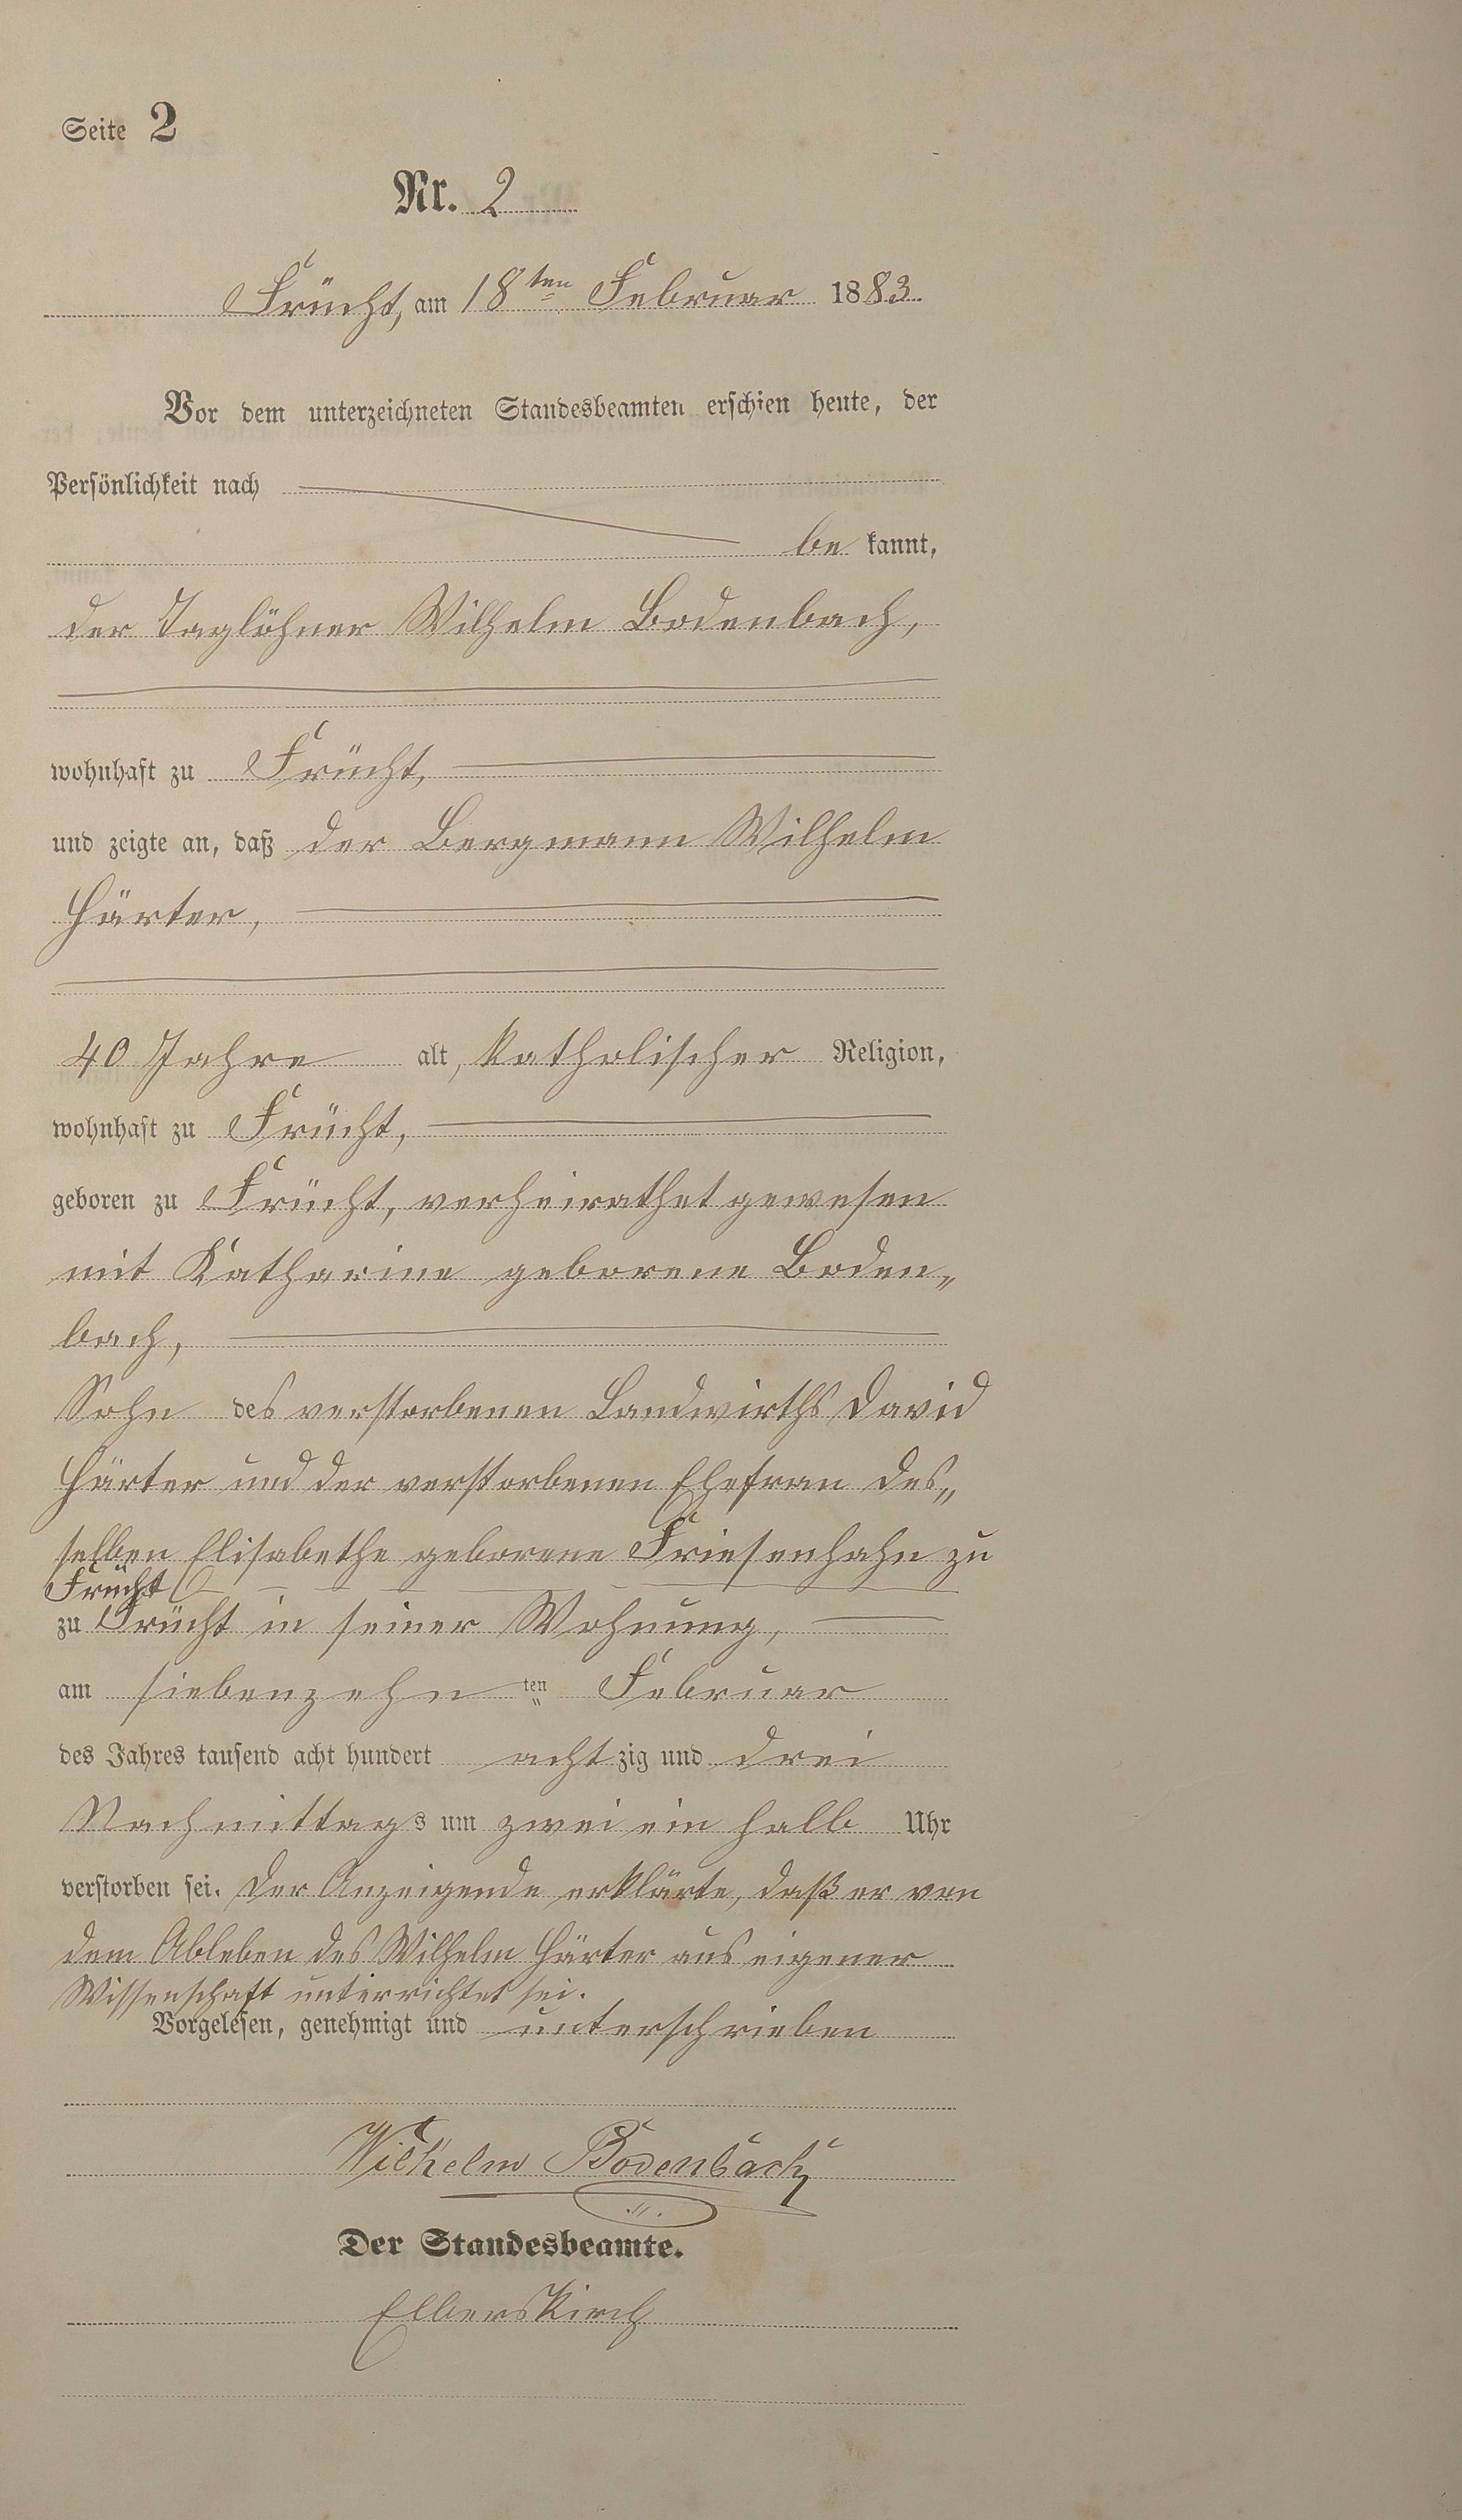 Seite 2
Nr. 2
Frücht, am 18ten Februar 1883.
Vor dem unterzeichneten Standesbeamten erschien heute, der
Persönlichkeit nach
be kannt,
der Taglöhner Wilhelm Bodenbach,
wohnhaft zu Frücht,
und zeigte an, daß der Bergmann Wilhelm
Härter,
40 Jahre alt, katholischer Religion,
wohnhaft zu Frücht,
geboren zu Frücht, verheirathet gewesen
mit Katharine geborene Boden„
bach,
Sohn des verstorbenen Landwirths David
Härter und der verstorbenen Ehefrau des„
selben Elisabethe geborene Friesenhahn zu
Frücht
zu Frücht in seiner Wohnung,
am siebenzehn ten Februar
des Jahres tausend acht hundert acht zig und drei
Nachmittags um zwei ein halb Uhr
verstorben sei. Der Anzeigende erklärte, daß er von
dem Ableben des Wilhelm Härter aus eigener
Wissenschaft unterrichtet sei.
Vorgelesen, genehmigt und unterschrieben
Wilhelm Bodenbach
Der Standesbeamte.
Elberskirch